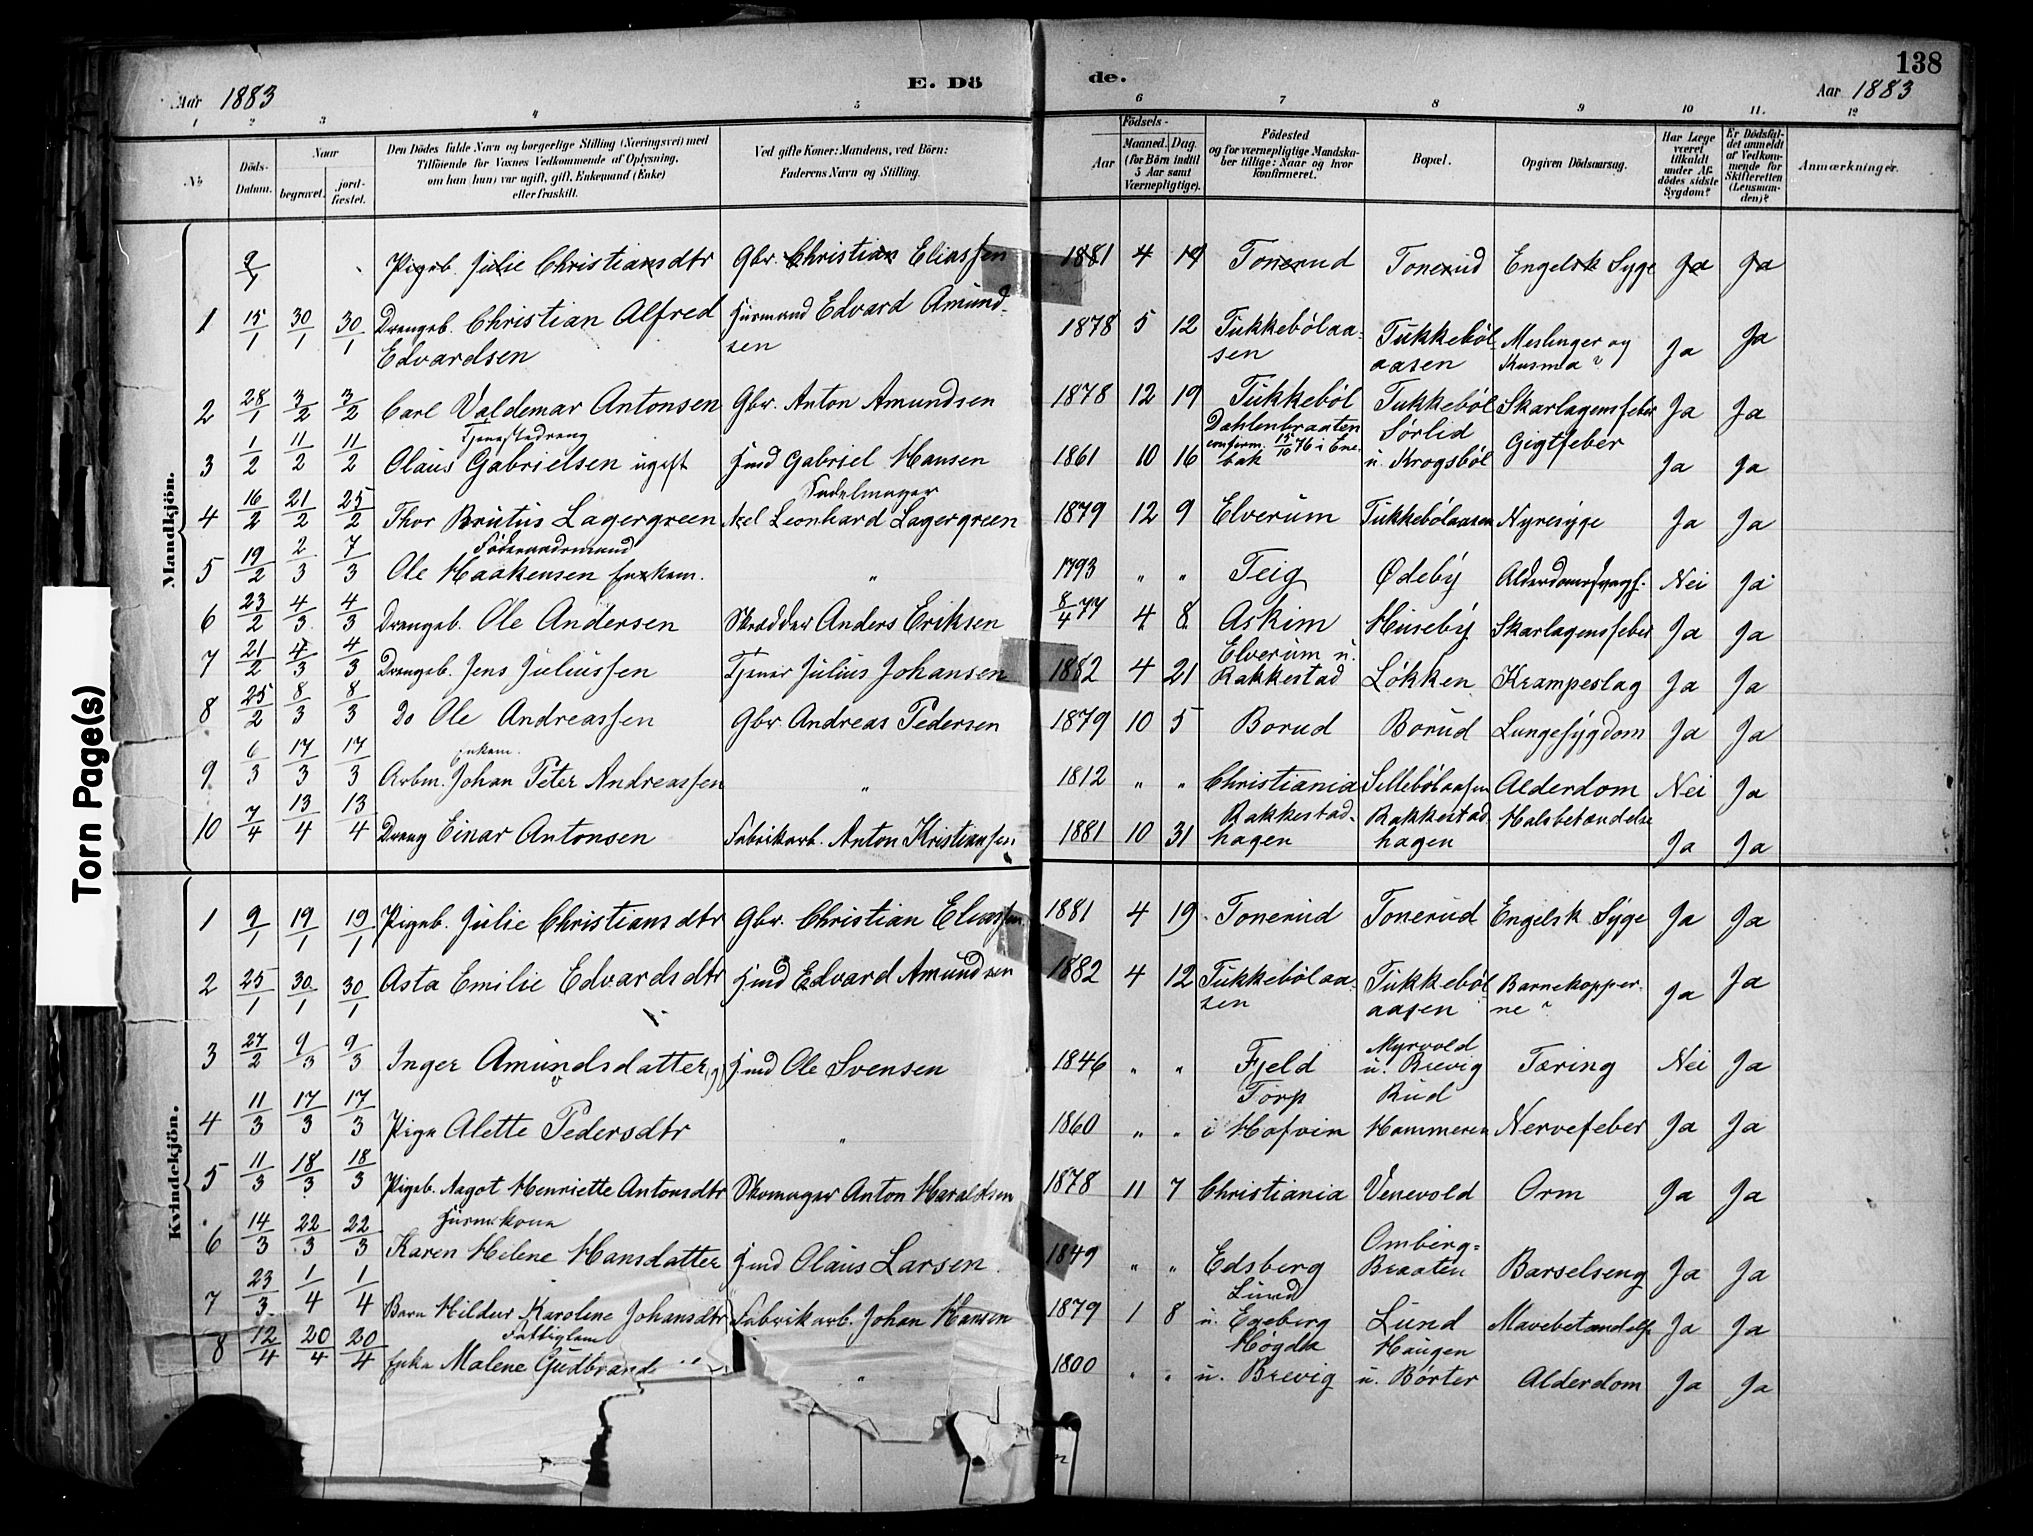 138
Aar 1883
E. Dö
de.
Aar 1883
1 2 3 4 5 6 7 8 9 10 11. 12
No
Döds-Datum.
Naar
begravet.
jord-fæstet.
Den Dödes fulde Navn og borgerlige Stilling (Næringsvei) med
Tilföiende for Voxnes Vedkommende af Oplysning,
om han (hun) var ugift, gift, Enkemand (Enke)
eller fraskilt.
Ved gifte Koner: Mandens, ved Börn:
Faderens Navn og Stilling.
Födsels-
Aar
Maaned. Dag.
(for Börn indtil
5 Aar samt
Værnepligtige).
Födested
og for værnepligtige Mandska-
ber tillige: Naar og hvor
konfirmeret.
Bopæl.
Opgiven Dödsaarsag.
Har Læge
været
tilkaldt
under Af-
dödes sidste
Sygdom?
Er Dödsfal-
det anmeldt
af Vedkom-
mende for
Skifteretten
(Lensman-
den)?
Anmærkninger.
Mandkjön.
9/1 Pigeb. Julie Christiansdtr Gbr. Christian Eliassen 1881 4 19 Tonerud Tonerud Engelsk Syge Ja Ja
1 15/1 30/1 30/1 Drengeb. Christian Alfred Husmand Edvard Amund- 1878 5 12 Tukkebölaa- Tukkeböl Meslinger og Ja Ja
Edvardsen sen sen aasen Kusma ?
2 28/1 3/2 3/2 Carl Valdemar Antonsen Gbr. Anton Amundsen 1878 12 19 Tukkeböl Tukkeböl Skarlagensfeber Ja Ja
Tjenestedreng Dahlenbraaten Sörlid
3 1/2 11/2 11/2 Olaus Gabrielsen ugift Hmd Gabriel Hansen 1861 10 16 confirm. 15/10 76 i Ene- bak u. Krogsböl Gigtfeber Ja Ja
Sadelmager
4 16/2 21/2 25/2 Thor Brutus Lagergreen Axel Leonhard Lagergreen 1879 12 9 Elverum Tukkebölaasen Nyresyge Ja Ja
Föderaadsmand
5 19/2 2/3 7/3 Ole Haakensen Enkem. " 1793 " " Teig Ødeby Nei Ja
6 23/2 4/3 4/3 Drengeb. Ole Andersen Skrædder Anders Eriksen 8/4 77 4 8 Askim Huseby Skarlagensfeber Ja Ja
Elverum u.
7 21/2 4/3 4/3 Drengeb. Jens Juliussen Tjener Julius Johansen 1882 4 21 Rakkestad Løkken Krampeslag Ja Ja
8 25/2 8/3 8/3 Do Ole Andreassen Gbr. Andreas Pedersen 1879 10 5 Borud Borud Lungesygdom Ja Ja
Enkem.
9 6/3 17/3 17/3 Arbm. Johan Peter Andreassen " 1812 " " Christiania Sillebölaasen Alderdom Nei Ja
Rakkestad- Rakkestad
10 7/4 13/4 13/4 Dreng Einar Antonsen Fabrikarb. Anton Kristiansen 1881 10 31 hagen hagen Halsbetændelse Ja Ja
Kvindekjön.
1 9/1 19/1 19/1 Pigeb. Julie Christiansdtr Gbr. Christian Eliassen 1881 4 19 Tonerud Tonerud Engelsk Syge Ja Ja
2 25/1 30/1 30/1 Asta Emilie Edvardsdtr Hmd Edvard Amundsen 1882 4 12 Tukkebölaa- Tukkeböl Barnekopper- Ja Ja
sen aasen ne ?
Myrvold
3 27/2 9/3 9/3 Inger Amundsdatter, g Hmd Ole Svensen 1846 " " Fjeld u. Brevig Tæring Nei Ja
Torp Rud
4 11/3 17/3 17/3 Pige Alette Pedersdtr " 1860 " " i Hofvin Hammeren Nervefeber Ja Ja
5 11/3 18/3 18/3 Pigeb. Aagot Henriette Antonsdtr Skomager Anton Haraldsen 1878 11 7 Christiania Venevold Orm Ja Ja
Husm.kone Omberg-
6 14/3 22/3 22/3 Karen Helene Hansdatter Hmd Olaus Larsen 1849 " " Edsberg Braaten Barselseng Ja Ja
Lund
7 23/3 1/4 1/4 Barn Hildur Karoline Johansdtr Fabrikarb. Johan Hansen 1879 1 8 u. Egeberg Lund Mavebetændelse Ja Ja
Fattiglem Høgda Haugen
8 12/4 20/4 20/4 Enke Malene Gudbrands " 1800 " " u. Brevig u. Børter Alderdom Ja Ja
Torn Page(s)